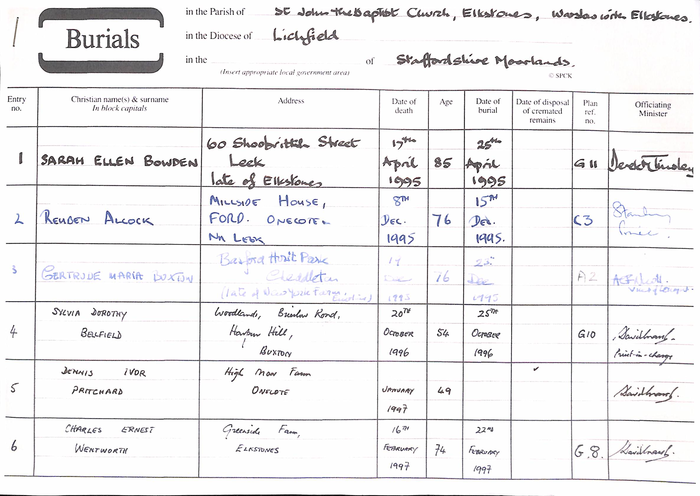 Burials
in the Parish of St John the Baptist Church, Elkstones, Warslow with Elkstones.
in the Diocese of Lichfield
in the of Staffordshire Moorlands.
(Insert appropriate local government area)
© SPCK
Entry no. Christian name(s) & surname In block capitals Address Date of death Age Date of burial Date of disposal of cremated remains Plan ref. no. Officiating Minister
1 SARAH ELLEN BOWDEN 60 Shoobridge Street Leek late of Elkstones 17th April 1995 85 25th April 1995 G11
2 REUBEN ALCOCK MILLSIDE HOUSE, FORD. ONECOTE. NR LEEK 8TH DEC. 1995 76 15TH DEC. 1995. C3
3 GERTRUDE MARIA BUXTON Park Cheddleton (late of Farm, 17 Dec 1995 Dec 1995 A2
4 SYLVIA DOROTHY BELFIELD Woodlands, Road, Harbour Hill, BUXTON 20TH OCTOBER 1996 54 25TH OCTOBER 1996 G10 Priest-in-charge
5 DENNIS IVOR PRITCHARD High Farm ONECOTE JANUARY 1997 49
6 CHARLES ERNEST WENTWORTH Greenside Farm, ELKSTONES 16TH FEBRUARY 1997 74 22ND FEBRUARY 1997 G.8.